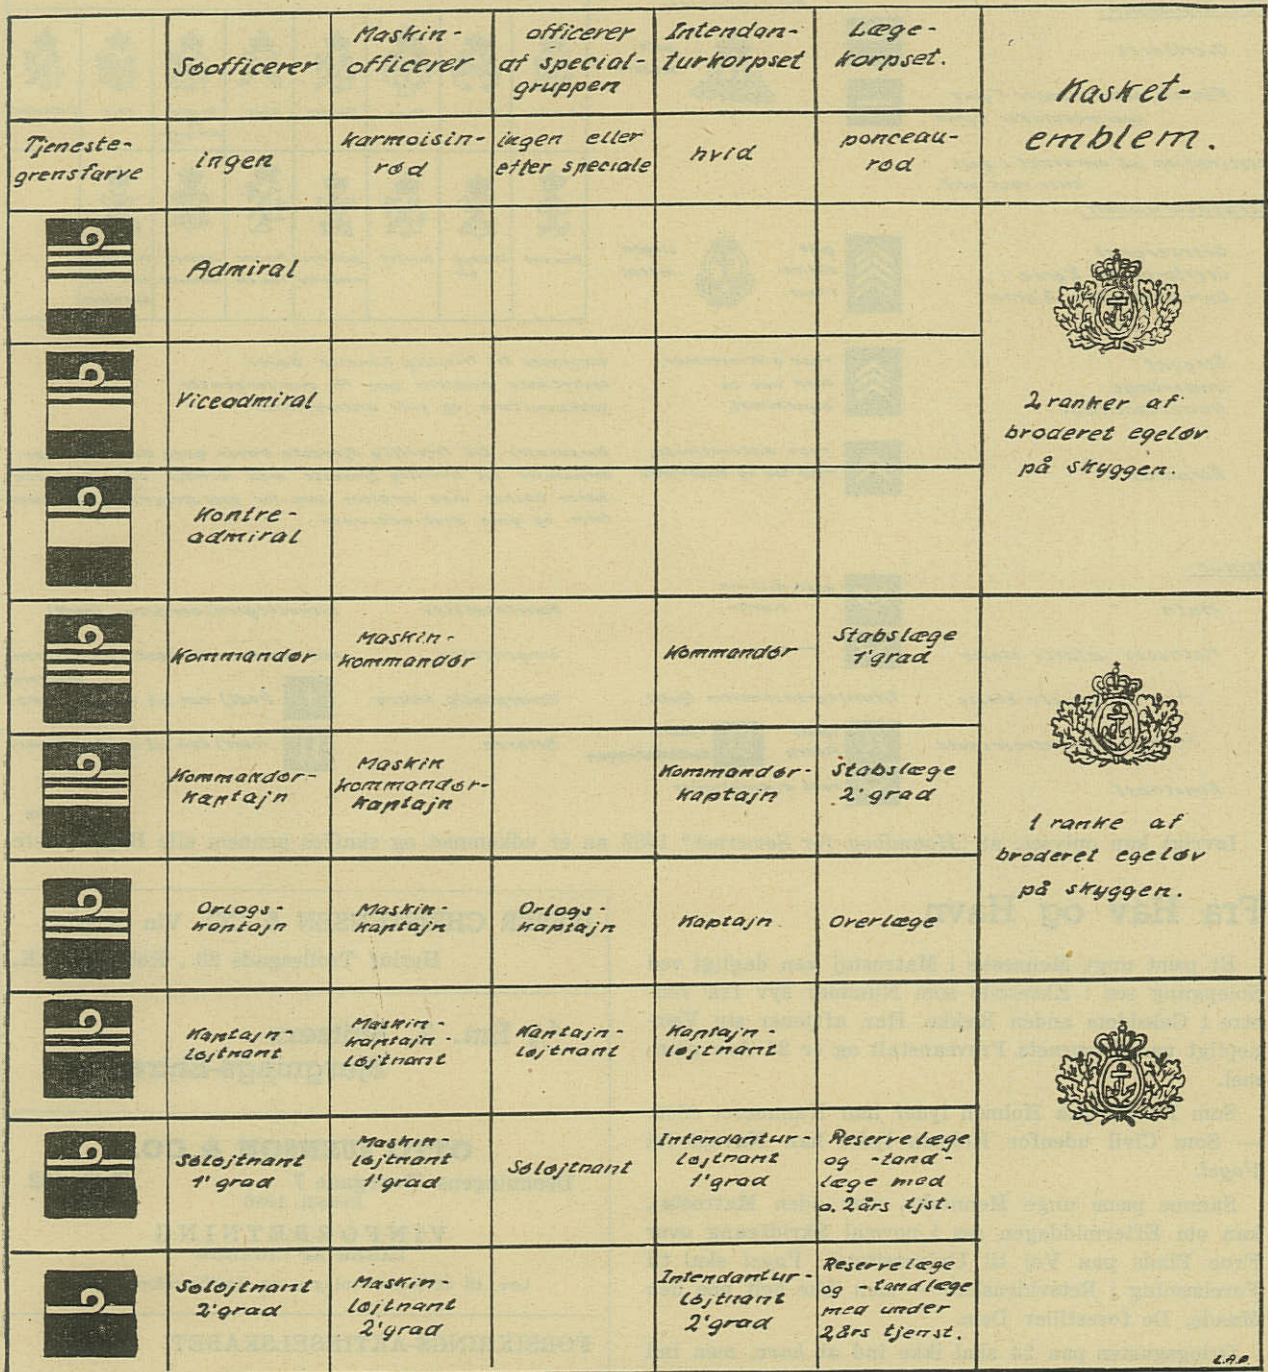 Søofficerer
Maskin-
officerer
officerer
af special-
gruppen
Intendan-
turkorpset
Læge-
korpset.
Kasket-
emblem.
Tjeneste-
grensfarve
ingen
karmoisin-
rød
ingen eller
efter speciale
hvid
ponceau-
rød
Admiral
2 ranker af
broderet egeløv
på skyggen.
Viceadmiral
Kontre-
admiral
Kommandør
Maskin-
kommandør
Kommandør
Stabslæge
1' grad
1 ranke af
broderet egeløv
på skyggen.
Kommandør-
kaptajn
Maskin
kommandør-
kaptajn
Kommandør-
kaptajn
Stabslæge
2' grad
Orlogs-
kaptajn
Maskin-
kaptajn
Orlogs-
kaptajn
Kaptajn
Overlæge
Kaptajn-
løjtnant
Maskin-
kaptajn-
løjtnant
Kaptajn-
løjtnant
Kaptajn-
løjtnant
Søløjtnant
1' grad
Maskin-
løjtnant
1' grad
Søløjtnant
Intendantur-
løjtnant
1' grad
Reservelæge
og -tand-
læge med
o. 2års tjst.
Søløjtnant
2' grad
Maskin-
løjtnant
2' grad
Intendantur-
løjtnant
2' grad
Reservelæge
og -tandlæge
med under
2års tjenst.